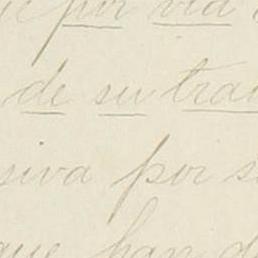 por via
de su tra
siva por s
que han d